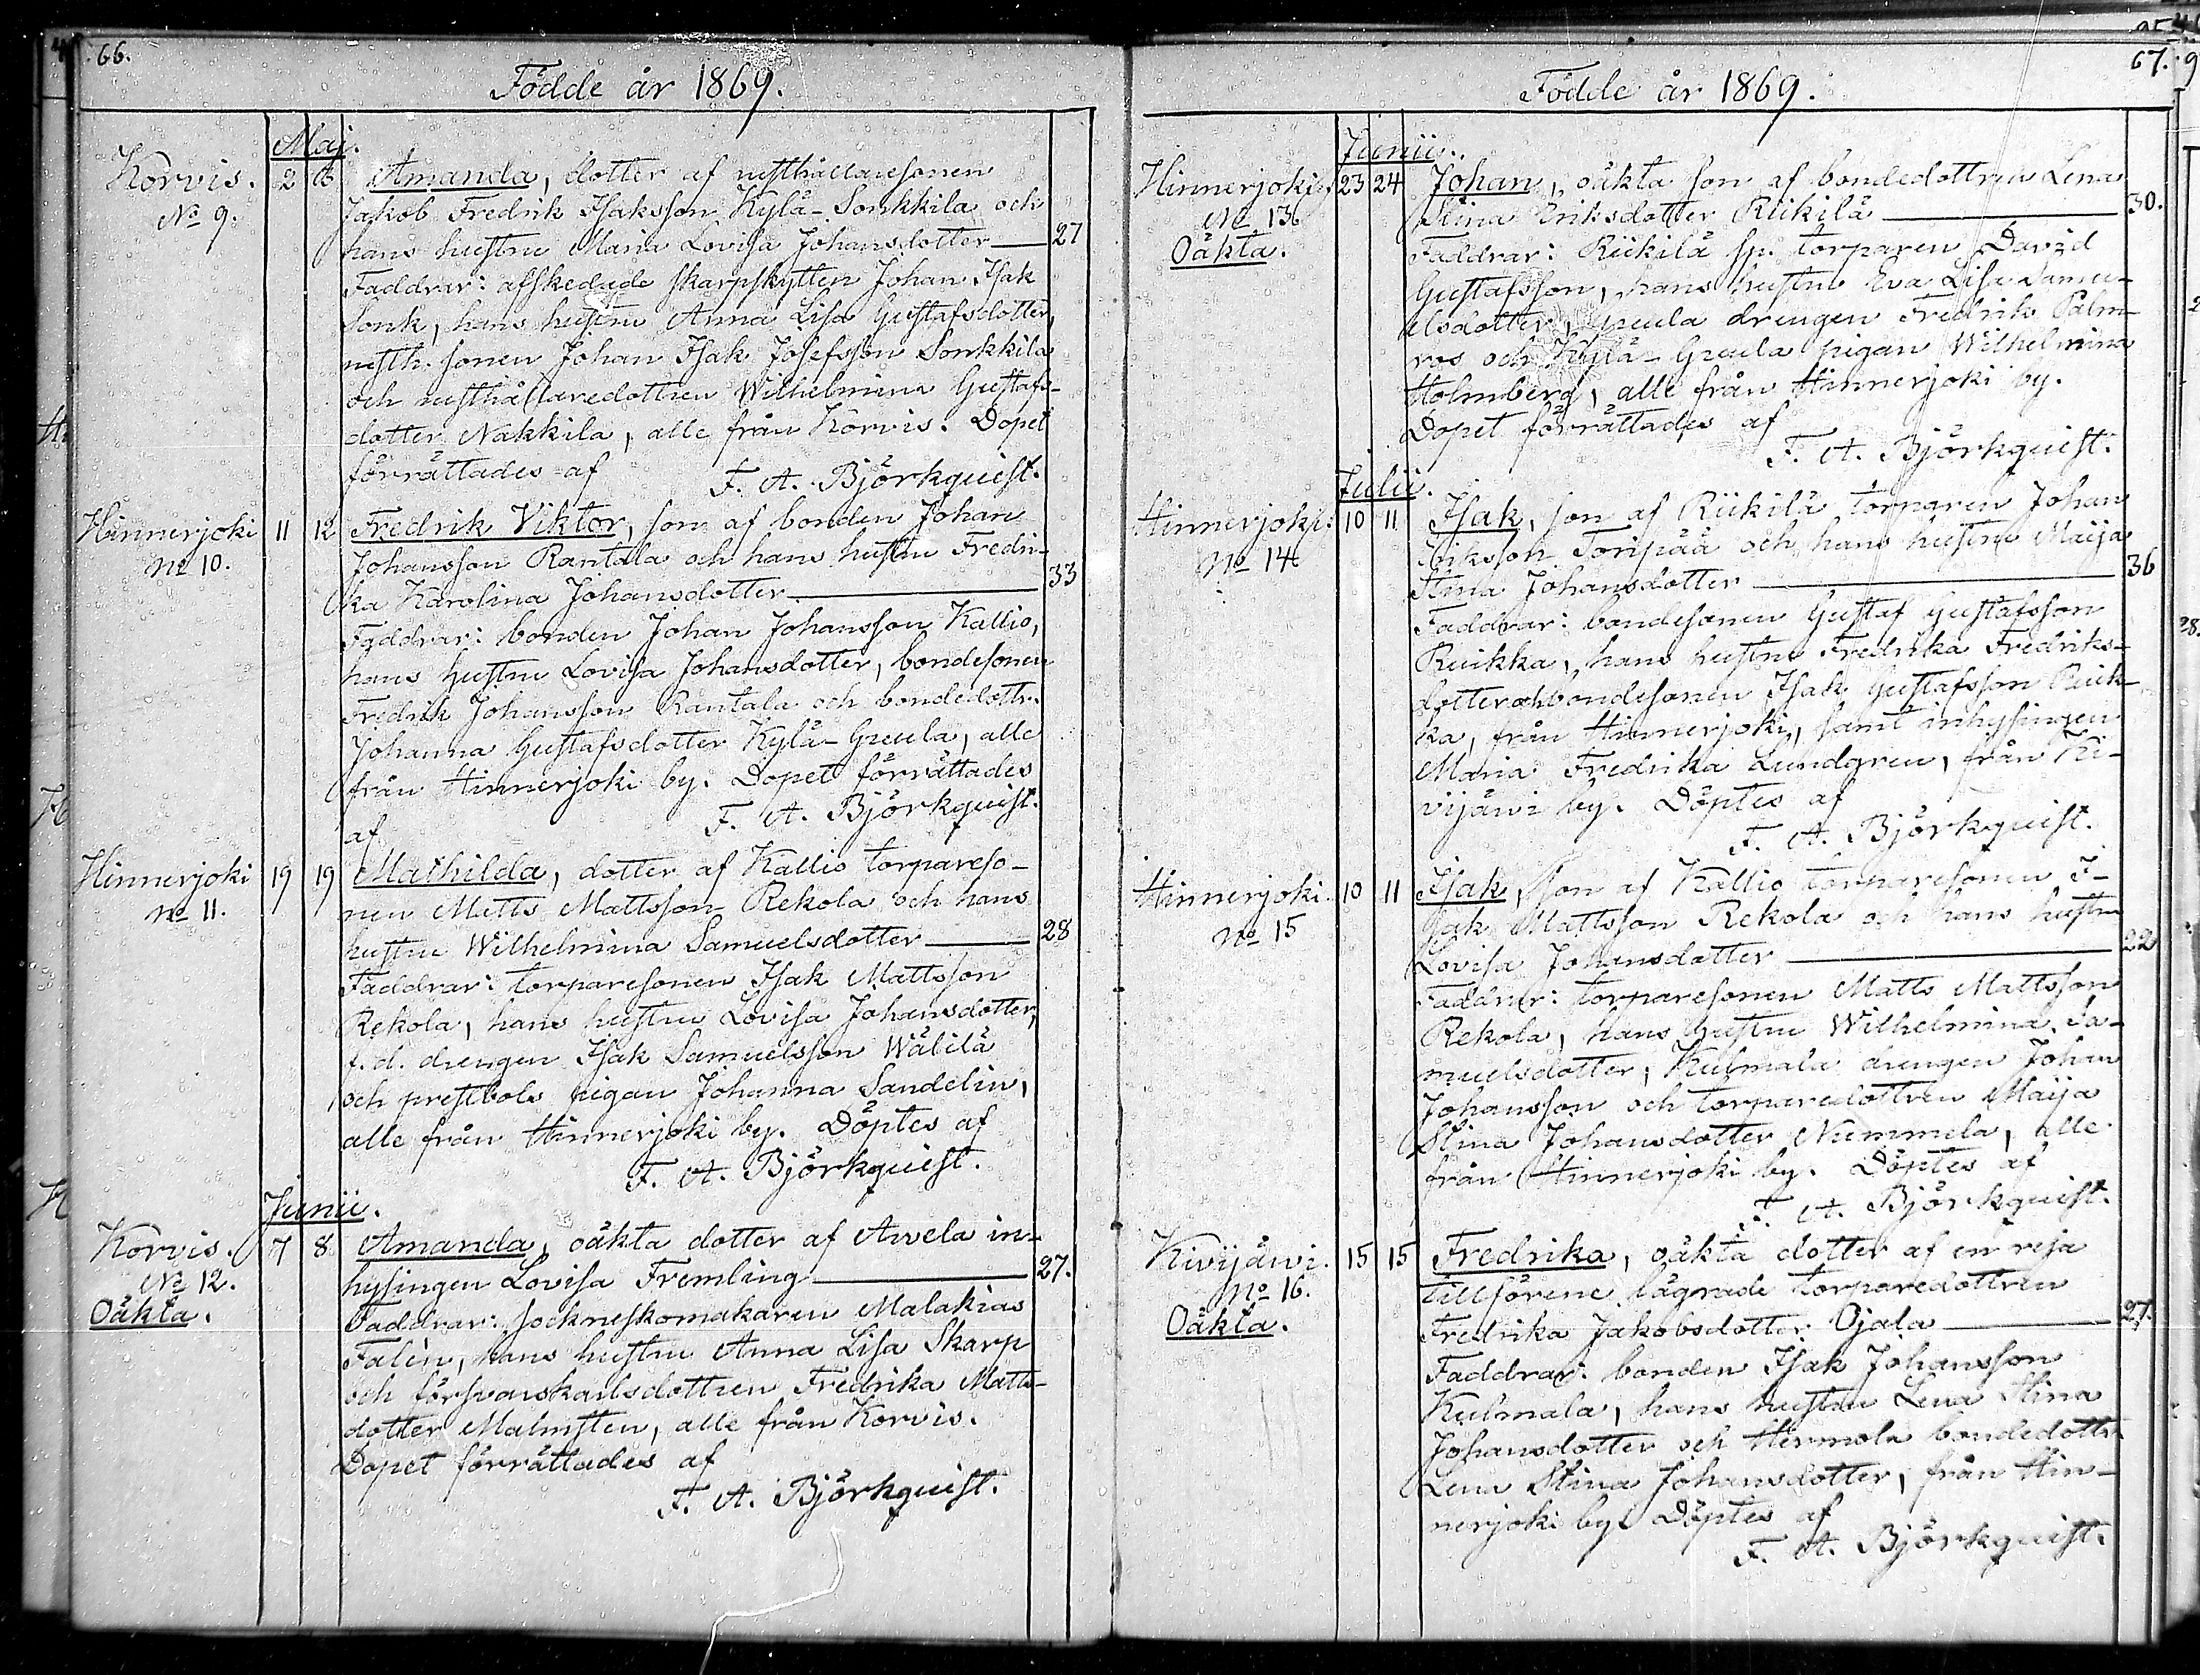 66.
Födde år 1869.
Maj.
Korvis. 2 6 Amanda, dotter af rusthållaresonen
No 9. Jakob Fredrik Isaksson Kylä-Sonkkila och
hans hustru Maria Lovisa Johansdotter 27
Faddrar: afskedade skarpskytten Johan Isak
Sonk, hans hustru Anna Lisa Gustafsdotter,
rusth. sonen Johan Isak Josefsson Sonkkila
och rusthållaredottren Wilhelmina Gustafs-
dotter Nakkila, alle från Korvis. Dopet
förrättades af F. A. Björkquist.
Hinnerjoki 11 12 Fredrik Viktor, son af bonden Johan
No 10. Johansson Rantala och hans hustru Fredri-
ka Karolina Johansdotter 33
Faddrar: bonden Johan Johansson Kallio,
hans hustru Lovisa Johansdotter, bondesonen
Fredrik Johansson Rantala och bondedottr.
Johanna Gustafsdotter Kylä-Greula, alle
från Hinnerjoki by. Dopet förrättades
af F. A. Björkquist.
Hinnerjoki 19 19 Mathilda, dotter af Kallio torpareso-
No 11. nen Matts Mattsson Rekola och hans
hustru Wilhelmina Samuelsdotter 28
Faddrar: torparesonen Isak Mattsson
Rekola, hans hustru Lovisa Johansdotter,
f.d. drengen Isak Samuelsson Wälilä
och prestbols pigan Johanna Sandelin,
alle från Hinnerjoki by. Döptes af
F. A. Björkquist.
Junii.
Korvis. 7 8 Amanda, oäkta dotter af Arvela in-
No 12. hysingen Lovisa Fremling 27.
Oäkta. Faddrar: sockneskomakaren Malakias
Falèn, hans hustru Anna Lisa Skarp
och försvarskarlsdottren Fredrika Matts-
dotter Malmsten, alle från Korvis.
Dopet förrättades af
F. A. Björkquist.
67.
Födde år 1869.
Junii.
Hinnerjoki. 23 24 Johan, oäkta son af bondedottren Lena
No 13. Stina Eriksdotter Riikilä 30.
Oäkta. Faddrar: Riikilä sp. torparen David
Gustafsson, hans hustru Eva Lisa Samu-
elsdotter, Greula drengen Fredrik Palm-
ros och Kylä-Greula pigan Wilhelmina
Holmberg, alle från Hinnerjoki by.
Dopet förrättades af
F. A. Björkquist.
Julii.
Hinnerjoki. 10 11 Isak, son af Riikilä torparen Johan
No 14 Eriksson Toripää och hans hustru Maija
Stina Johansdotter 36
Faddrar: bondesonen Gustaf Gustafsson
Ruikka, hans hustru Fredrika Fredriks-
dotter och bondesonen Isak Gustafsson Ruik-
ka, från Hinnerjoki, samt inhysingen
Maria Fredrika Lundgren, från Ki-
vijärvi by. Döptes af
F. A. Björkquist.
Hinnerjoki. 10 11 Isak, son af Kallio torparesonen I-
No 15 sak Mattsson Rekola och hans hustru
Lovisa Johansdotter 22
Faddrar: torparesonen Matts Mattsson
Rekola, hans hustru Wilhelmina Sa-
muelsdotter, Kulmala drengen Johan
Johansson och torparedottren Maija
Stina Johansdotter Nummela, alle
från Hinnerjoki by. Döptes af
F. A. Björkquist.
Kivijärvi. 15 15 Fredrika, oäkta dotter af en resa
No 16. tillförene lägrade torparedottren
Oäkta. Fredrika Jakobsdotter Ojala 27.
Faddrar: bonden Isak Johansson
Kulmala, hans hustru Lena Stina
Johansdotter och Hermola bondedottr
Lena Stina Johansdotter, från Hin-
nerjoki by. Döptes af
F. A. Björkquist.